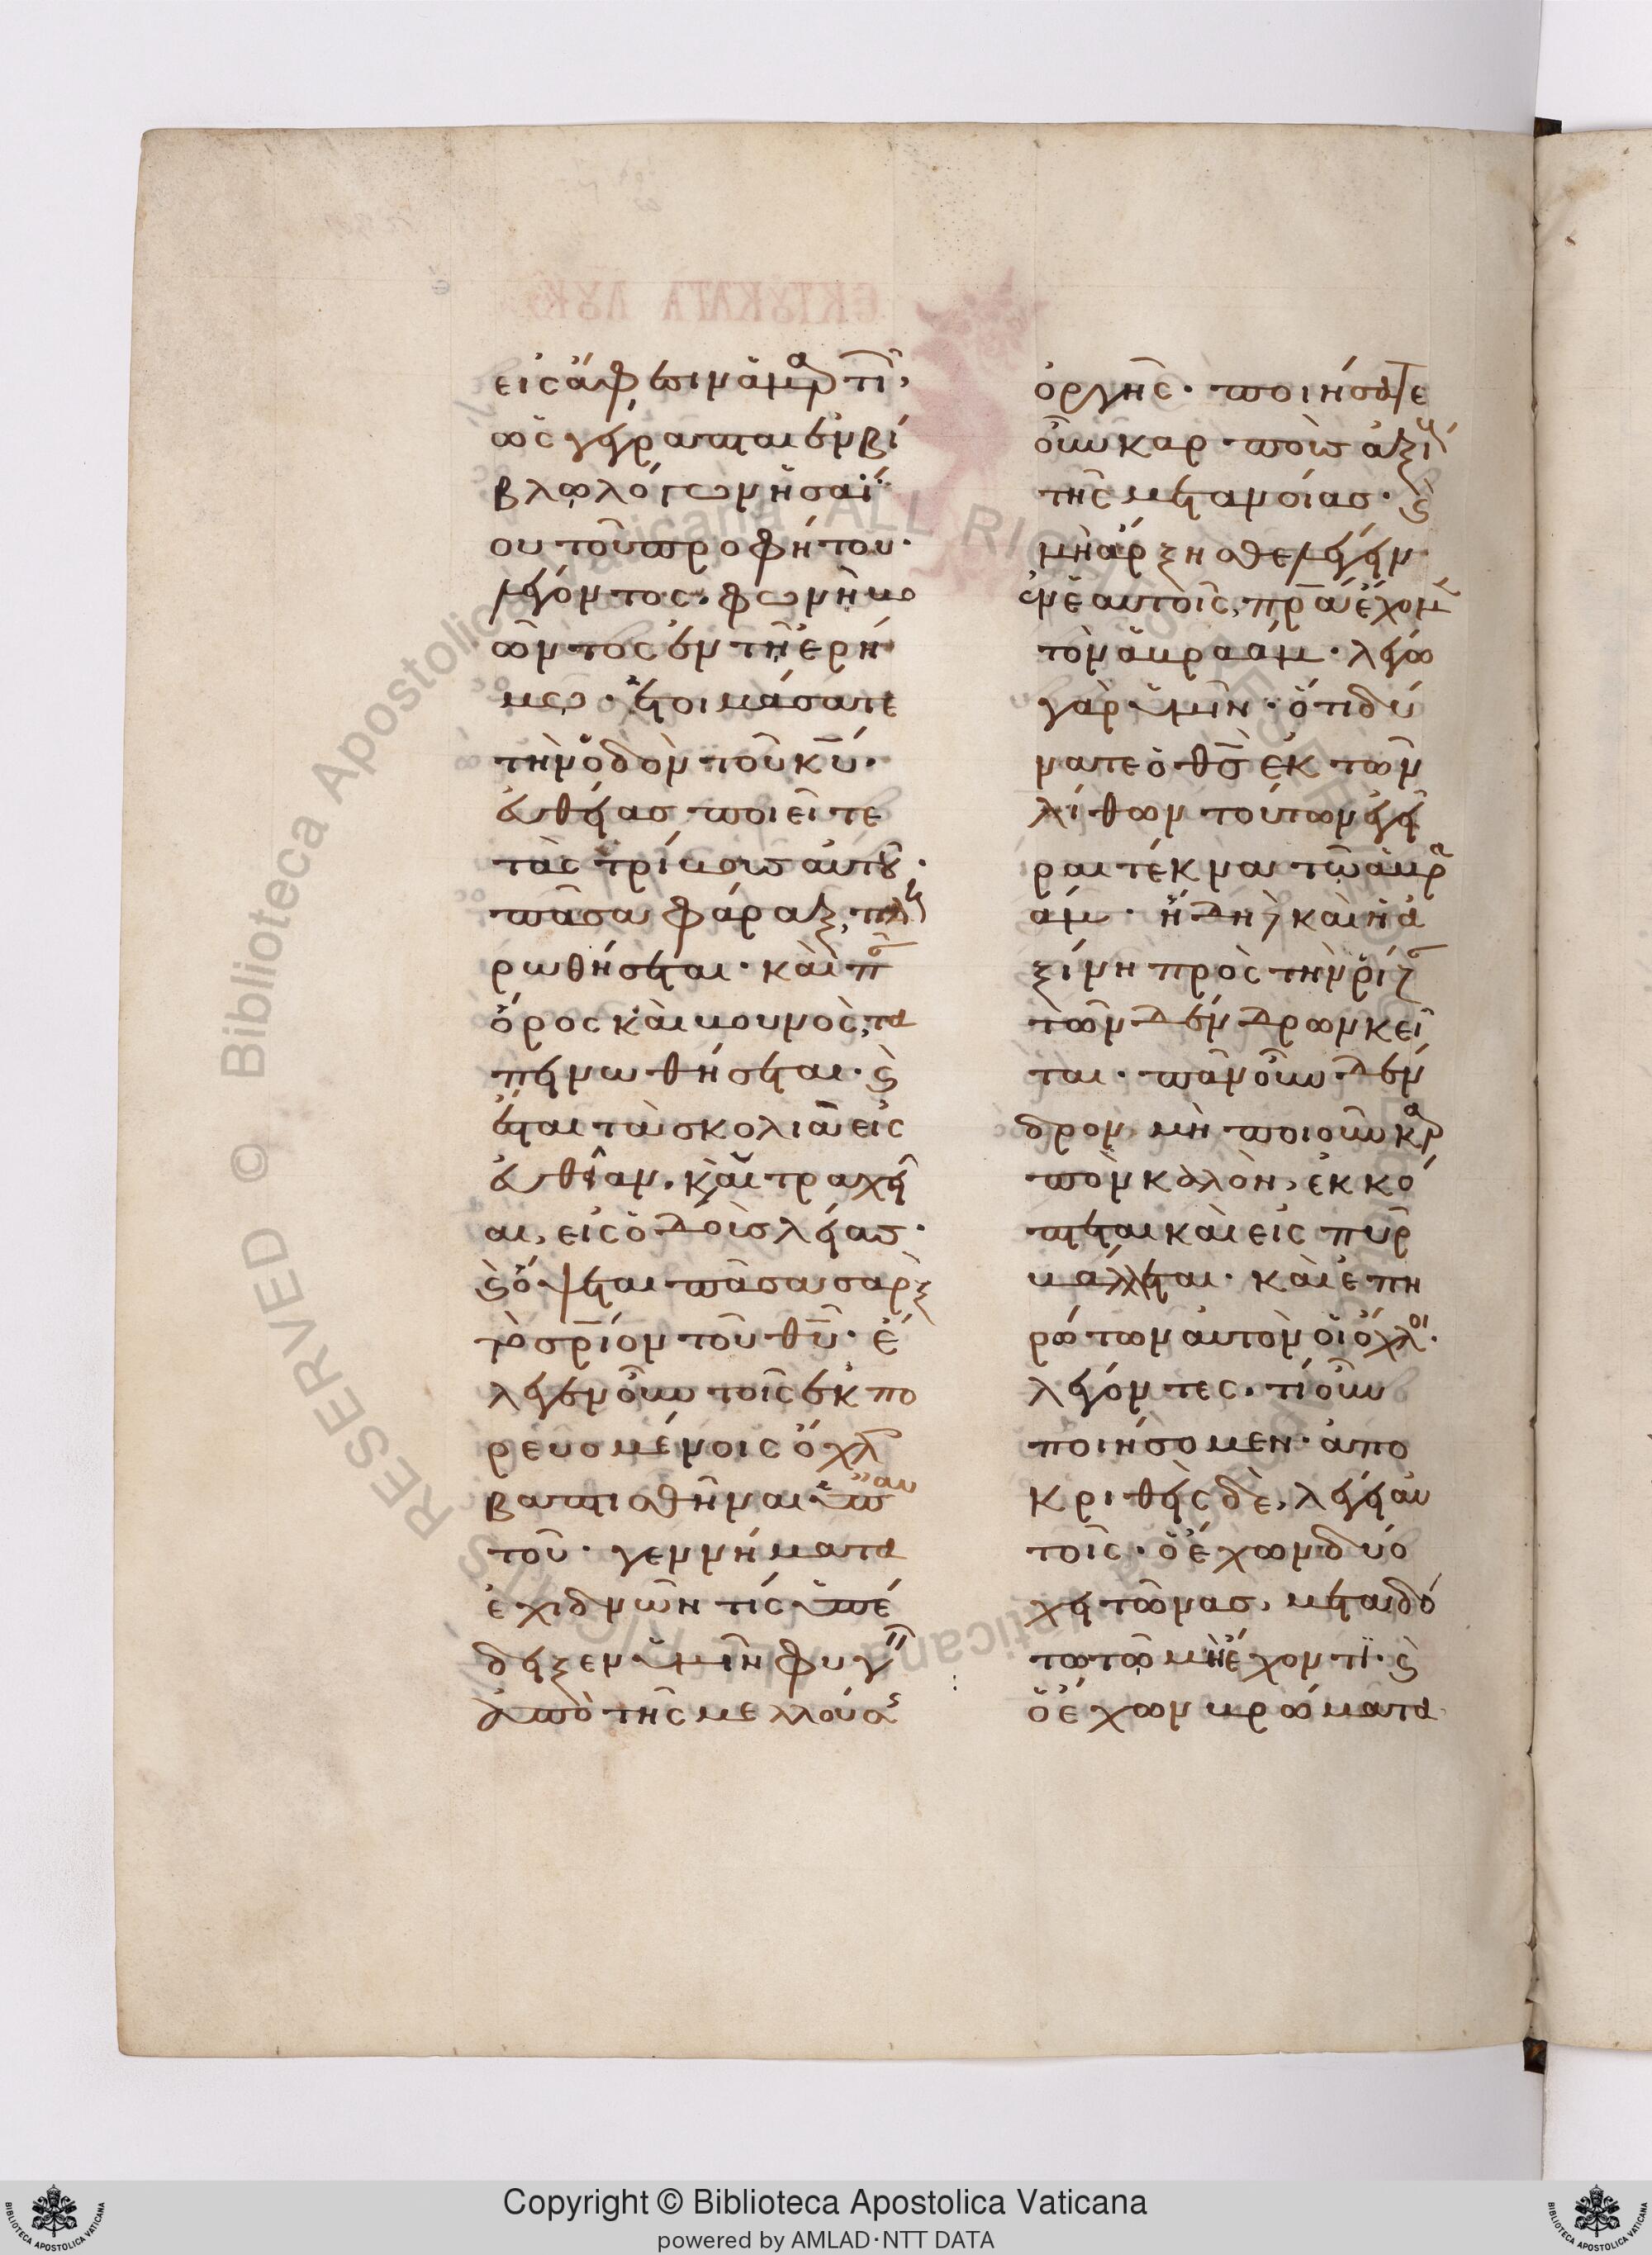 εἰς ἄφεσιν ἁμαρτι,
ὡς γέγραπται ἐν βί
βλῳ λόγων ἠσαΐ
ου τοῦ προφήτου·
λέγοντος· φωνὴ βο
ῶντος ἐν τῇ ἐρή
μῳ· ἑτοιμάσατε
τὴν ὁδὸν τοῦ κ̅υ̅·
εὐθείας ποιεῖτε
τὰς τρίβους αὐτοῦ·
πᾶσα φάραξ, πλη
ρωθήσεται· καὶ π
ὄρος καὶ βουνὸς, τα
πεινωθήσεται· ϛ
ἔσται τὰ σκολιὰ εἰς
εὐθεῖαν· καὶ αἱ τραχεῖ
αι, εἰς ὁδοὺς λείας·
ϛ ὄψεται πᾶσα σὰρξ
τὸ σ̅ρ̅ιον τοῦ θ̅υ̅· ἔ
λεγεν οὖν τοῖς ἐκπο
ρευομένοις ὄχλ
βαπτισθῆναι ὑπ αυ
τοῦ· γεννήματα
ἐχιδνῶν τίς ὑπέ
δειξεν ὑμῖν φυγεῖν
ἀπὸ τῆς μελλούσ
ὀργῆς· ποιήσατε
οὖν καρποὺς ἀξί
τῆς μετανοίας· ϛ
μὴ ἄρξησθε λέγειν
ἐν ἑαυτοῖς, π̅ρ̅α ἔχομ
τὸν ἀβραάμ· λέγω
γὰρ ὑμῖν· ὅτι δύ
ναται ὁ θ̅ς̅ ἐκ τῶν
λίθων τούτων ἐγεῖ
ραι τέκνα τῷ ἀβρα
άμ· ἤδη καὶ ἡ ἀ
ξίνη πρὸς τὴν ῥίζ
τῶν δένδρων κεῖ
ται· πᾶν οὖν δέν
δρον μὴ ποιοῦν καρ
πὸν καλὸν, ἐκκό
πτεται καὶ εἰς πῦρ
βάλλεται· καὶ ἐπη
ρώτων αὐτὸν οἱ ὄχλοι·
λέγοντες· τί οὖν
ποιήσομεν· ἀπο
κριθεὶς δὲ, λέγει αυ
τοῖς· ὁ ἔχων δύο
χιτῶνας, μεταδό
τω τῷ μὴ ἔχοντι· ϛ
ὁ ἔχων βρώματα
Copyright © Biblioteca Apostolica Vaticana
powered by AMLAD·NTT DATA